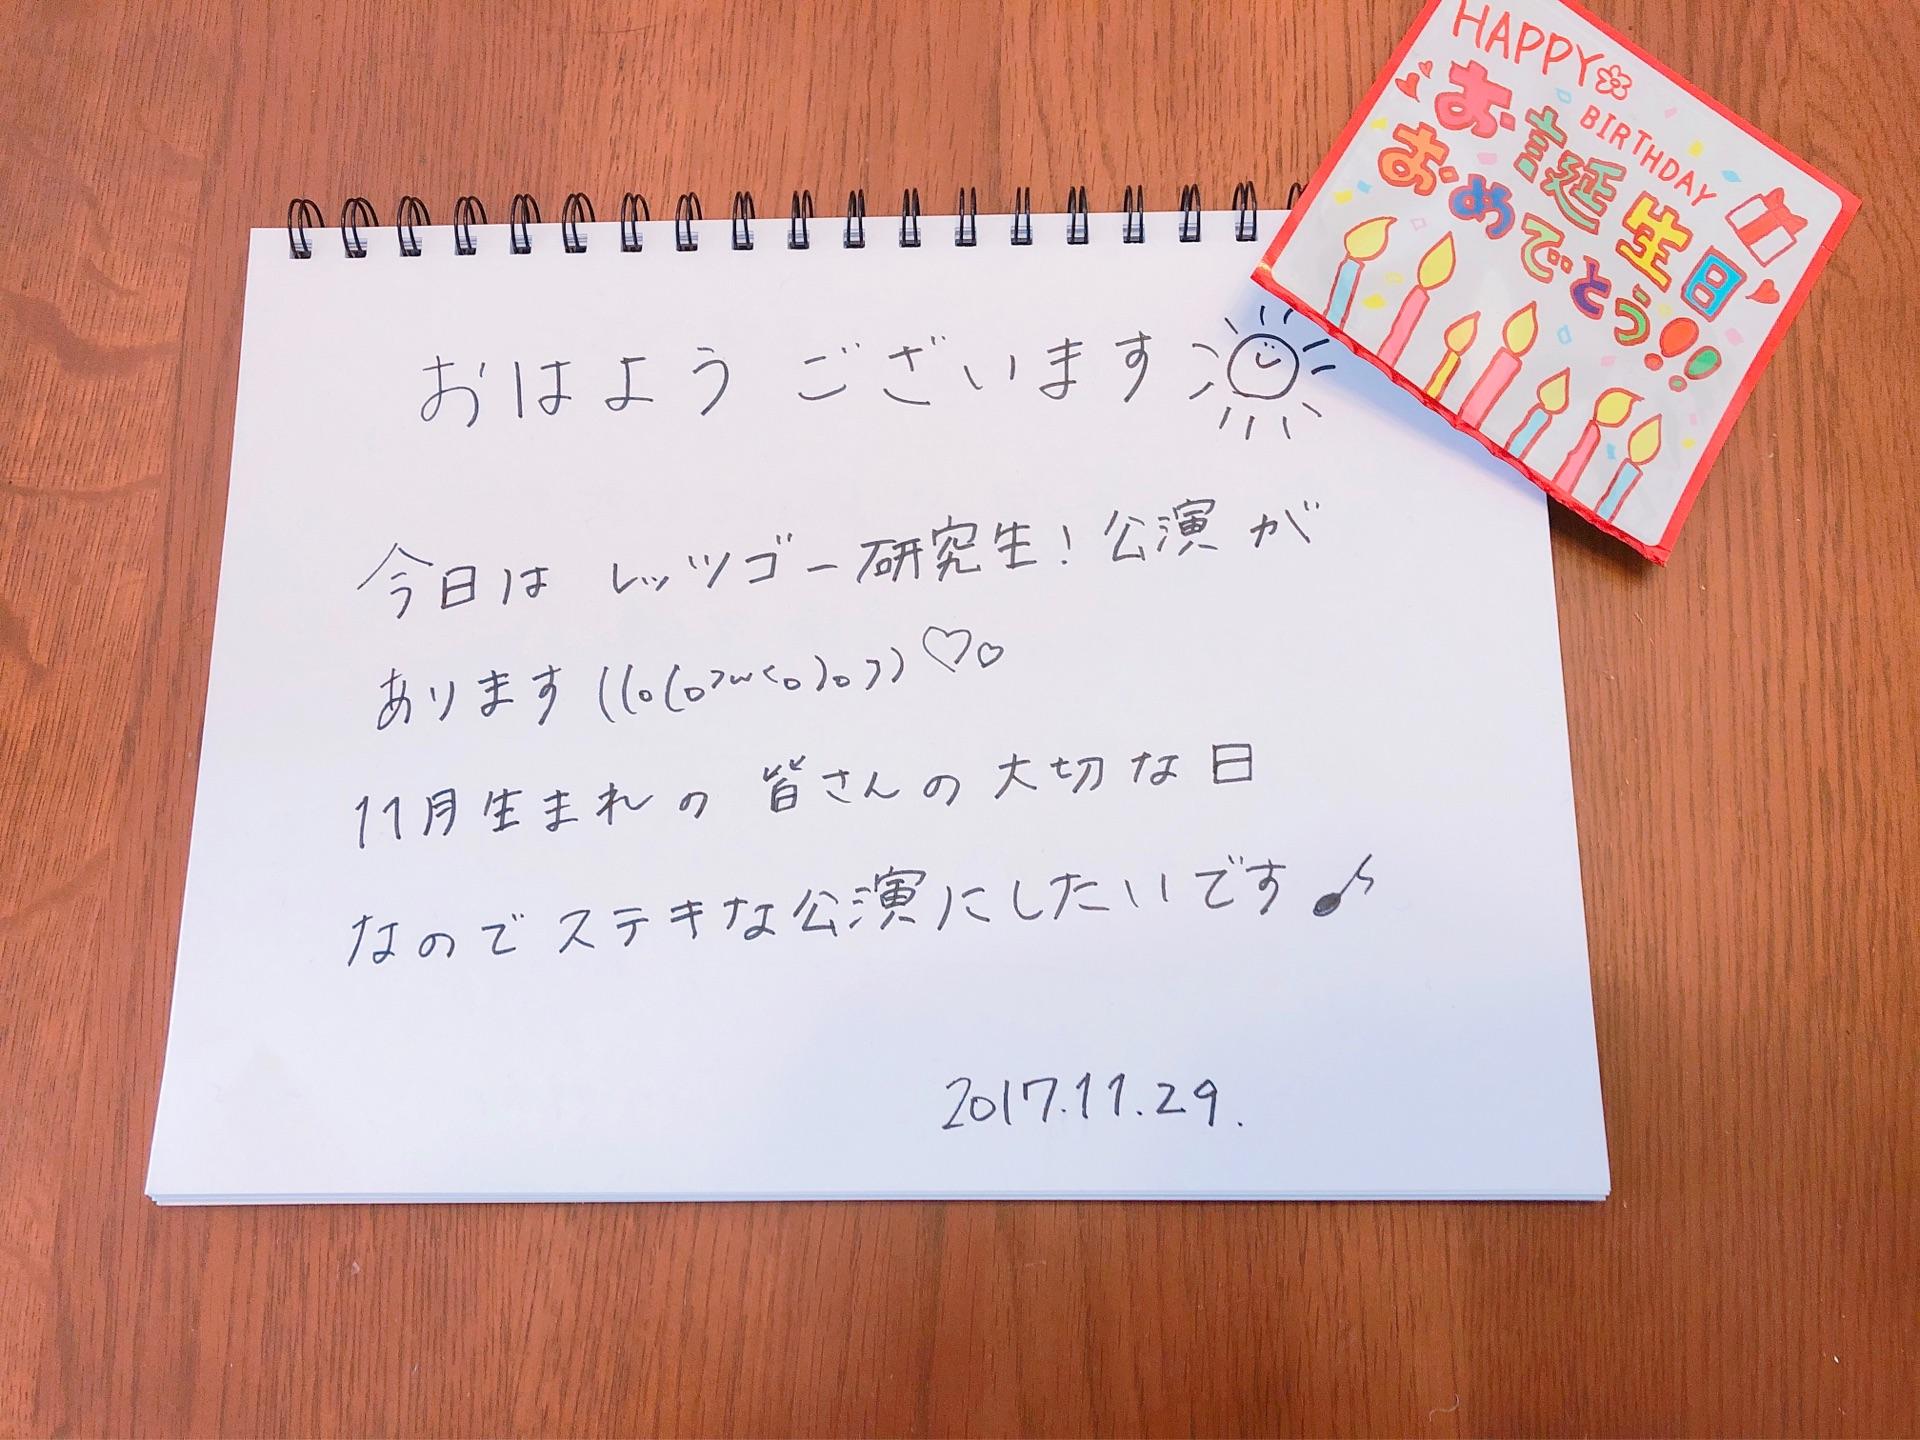 HAPPY
BIRTHDAY
お誕生日
おめでとう!!
おはようございます
今日は レッツゴー研究生！公演が
あります((o(o>w<o)o))♡♡
11月生まれの 皆さんの大切な日
なのでステキな公演にしたいです♪
2017.11.29.